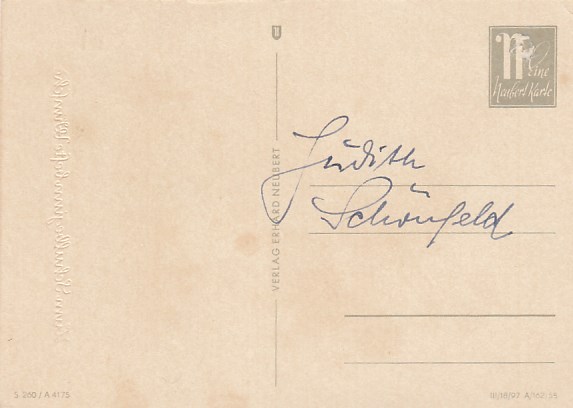 Eine
Neubert Karte
Judith
Schönfeld
VERLAG ERHARD NEUBERT
S 260 / A 4175
III/18/97 A/162/55